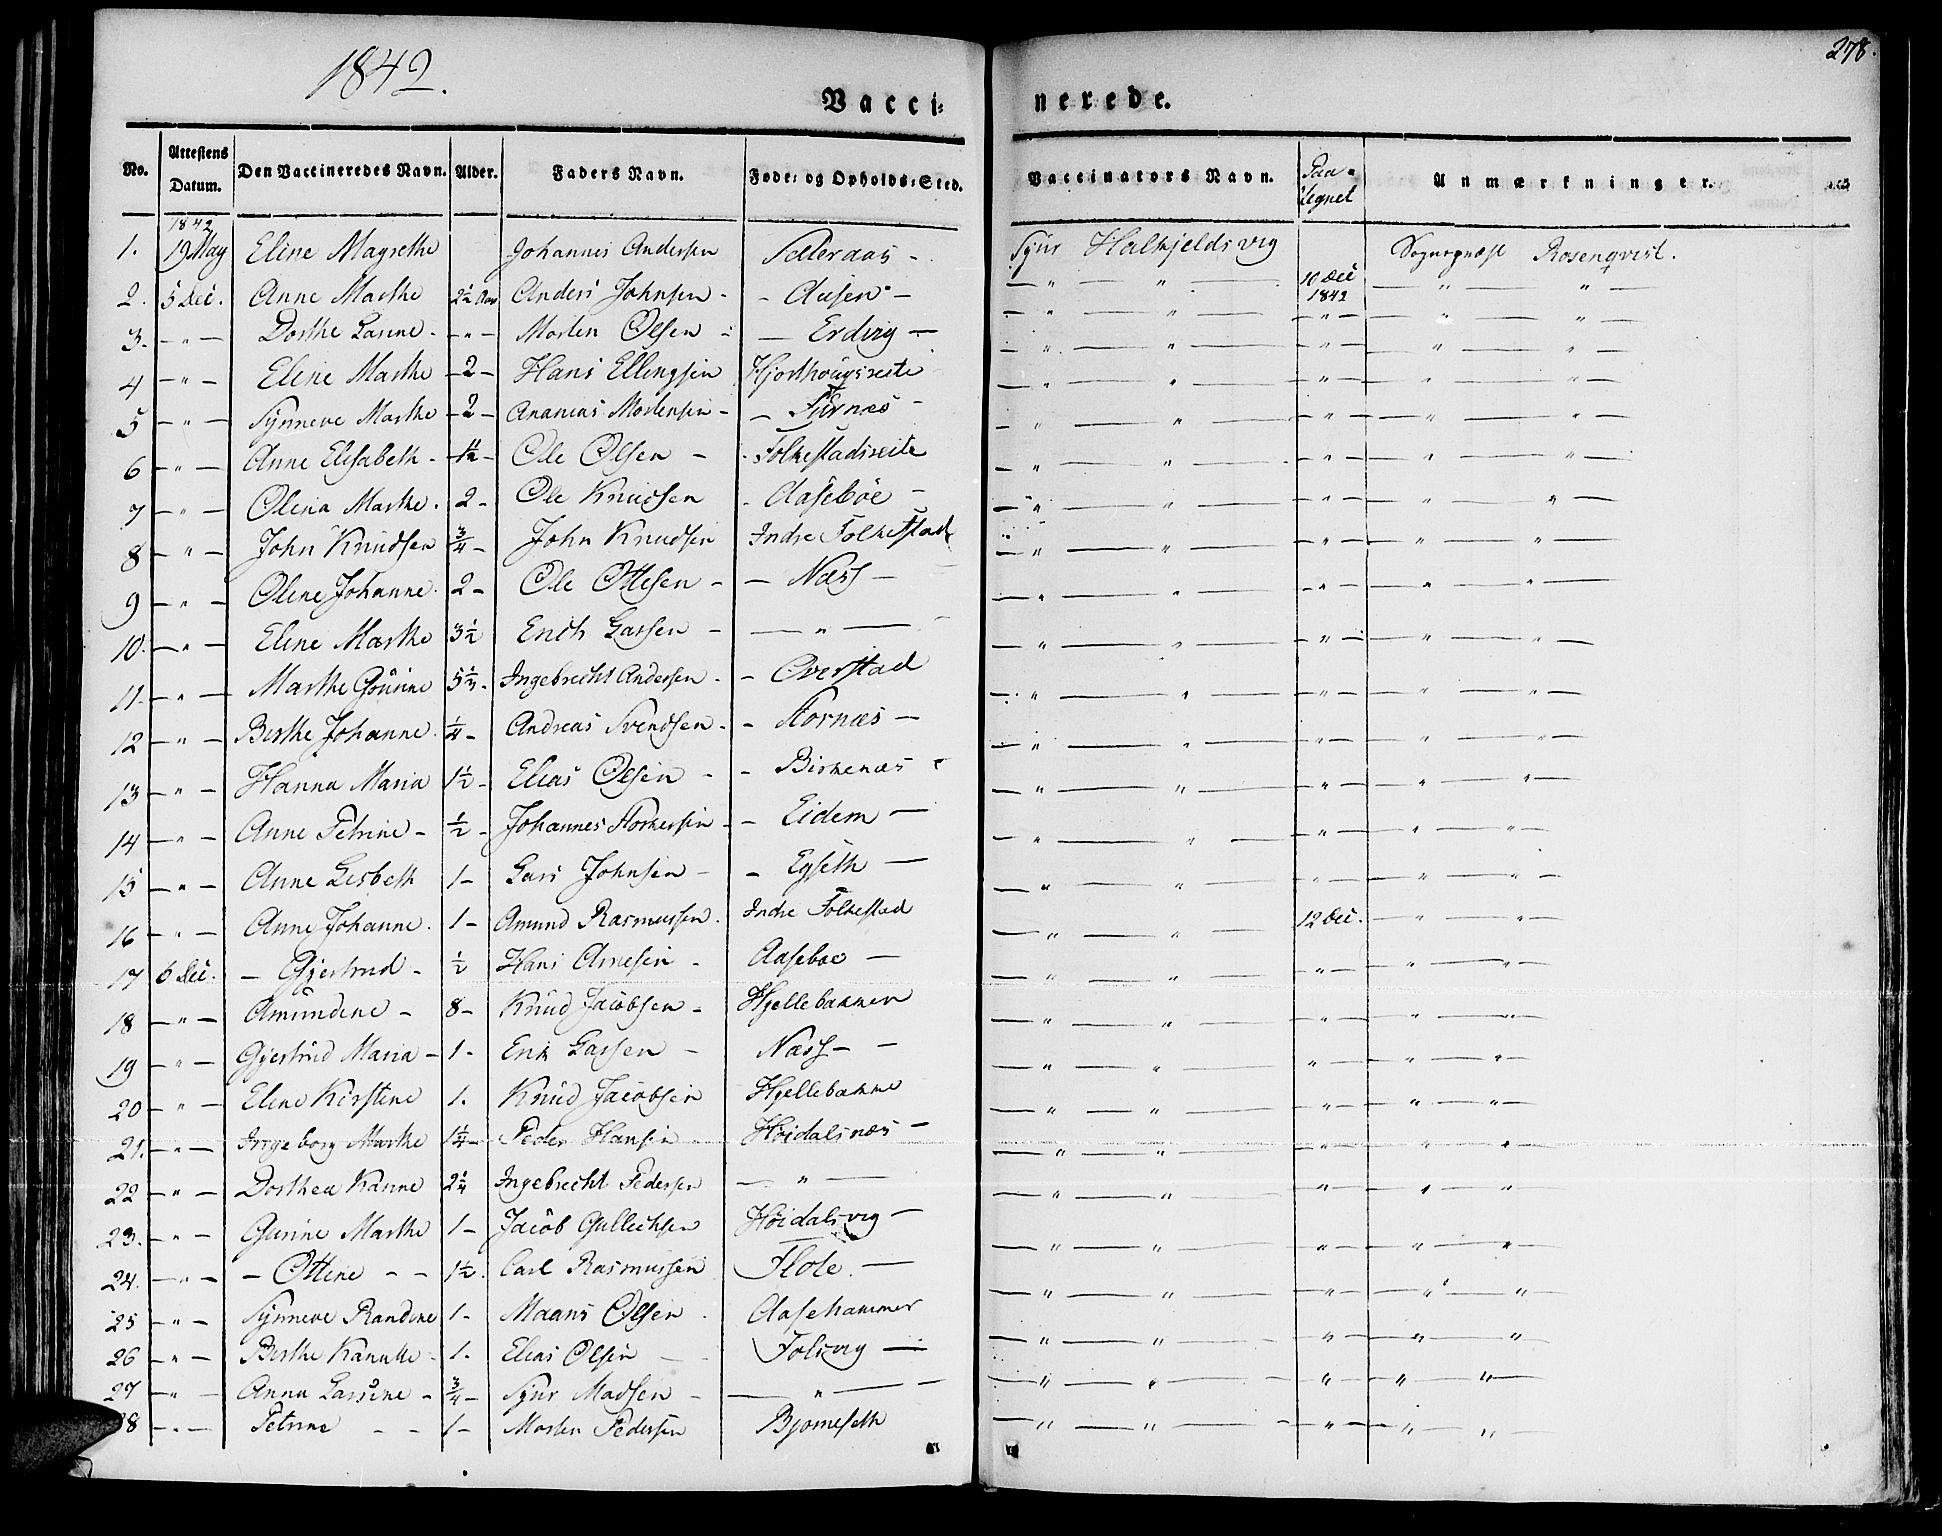 1842.
278.
Vacci= nerede.
No. Attestens Datum. Den Vaccineredes Navn. Alder. Faders Navn. Føde= og Opholds=Sted. Vaccinators Navn. Paa=tegnet Anmærkninger.
1842
1. 19 May Eline Magrethe Johannes Andersen Sætteraas - Sjur Halkjeldsvig Sognepræst Rosenqvist.
2. 5 Dec. Anne Marthe 2½ Aar Anders Johnsen - - Aasen - — " — " — 10 Dec 1842 — " — " —
3. - " - Dorthe Larine - - " - Morten Olsen - — Erdvig — — " — " — - " - — " — " —
4 - " - Eline Marthe - 2 - Hans Ellingsen Hjorthougsseite — " — " — - " - — " — " —
5 - " - Synneve Marthe - 2 - Ananias Mortensen - - Furnæs - — " — " — - " - — " — " —
6 - " - Anne Elisabeth - - 1½ - Ole Olsen - - Folkestadseite — " — " — - " - — " — " —
7 - " - Olina Marthe . 2 - Ole Knudsen - Aasebøe - — " — " — - " - — " — " —
8 - " - John Knudsen ¾ - John Knudsen Indre Folkestad — " — " — - " - — " — " —
9 - " - Oline Johanne . 2 - Ole Ottesen - — Næss — — " — " — - " - — " — " —
10. - " - Eline Marthe 3½ Erich Larsen - — " — — " — " — - " - — " — " —
11. - " - Marthe Gourine 5½ - Ingebrecht Andersen - - Overstad — " — " — - " - — " — " —
12 - " - Berthe Johanne . ¼ - Andreas Svendsen - - Stornæs — — " — " — - " - — " — " —
13 - " - Hanna Maria 1½ - Elias Olsen - - Birkenæs — " — " — - " - — " — " —
14 - " - Anne Petrine - ½ - Johannes Storkersen - - Eidem — — " — " — - " - — " — " —
15 - " - Anne Lisbeth 1 - Lars Johnsen - - Egseth — — " — " — - " - — " — " —
16 - " - Anne Johanne . 1 - Amund Rasmussen . Indre Folkestad — " — " — 12 Dec. — " — " —
17 6 Dec. - Gjertrud - ½ Hans Arnesen - Aasebøe — — " — " — - " - — " — " —
18 - " - Amundine - 8 - Knud Jacobsen - Hjellebakken — " — " — - " - — " — " —
19 - " - Gjertrud Maria - 1 - Erik Larsen - Næss - — " — " — - " - — " — " —
20 - " - Eline Kirstine 1. Knud Jacobsen Hjellebakke — " — " — - " - — " — " —
21. - " - Ingeborg Marthe 1¼ - Peder Hansen - Høidalsnæs - — " — " — - " - — " — " —
22 - " - Dorthea Hanne 2¼ Ingebrecht Pedersen — " — — " — " — - " - — " — " —
23. - " - Gurine Marthe 1 - Jacob Gullichsen Høidalsvig — — " — " — - " - — " — " —
24. - " - - Ottine - - 1½. Carl Rasmussen Flote. — — " — " — - " - — " — " —
25 - " - Synneve Randine 1 - Maans Olsen . Aasehammer — " — " — - " - — " — " —
26 - " - Berthe Kanutte - 1. Elias Olsen — Folsvig — — " — " — - " - — " — " —
27 - " - Anna Larsine - ¾ - Sjur Madsen - — " — — " — " — - " - — " — " —
28 - " - Petrine - - 1 - Morten Pedersen Bjørneseth — " — " — - " - — " — " —